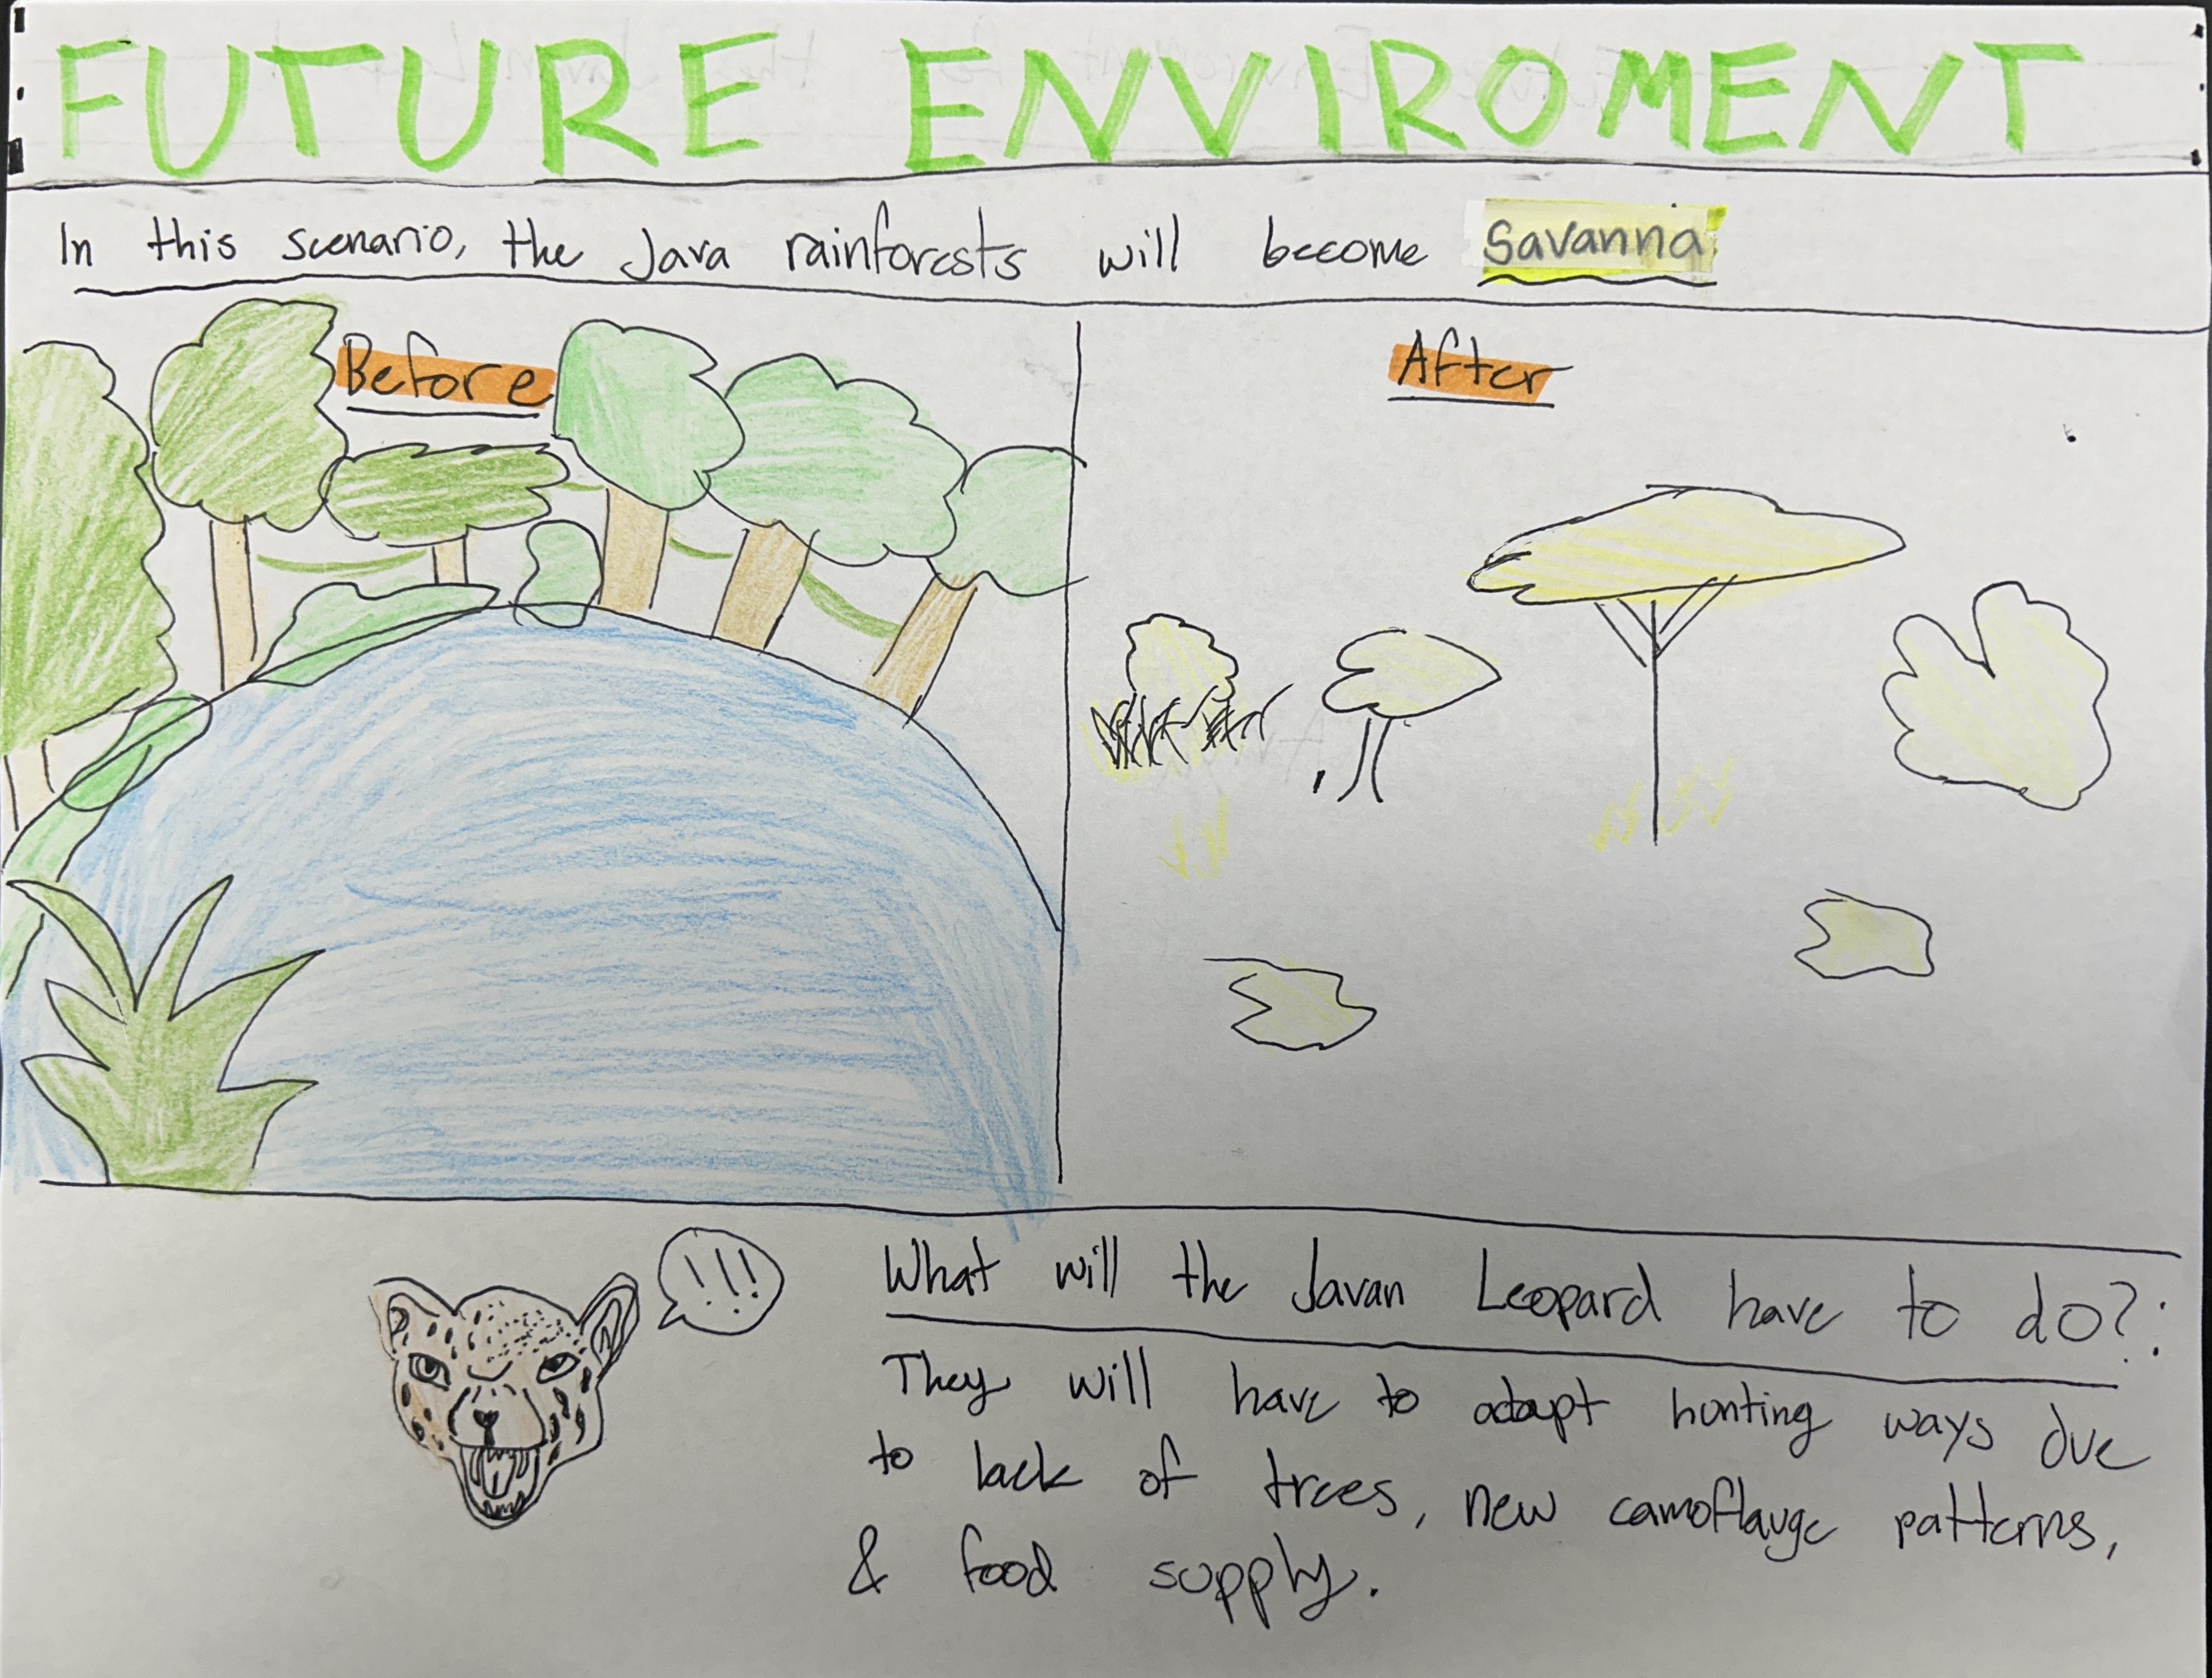 FUTURE ENVIROMENT
In this scenario, the Java rainforests will become savanna
Before
After
!!!
What will the Javan Leopard have to do?:
They will have to adapt hunting ways due
to lack of trees, new camoflauge patterns,
& food supply.